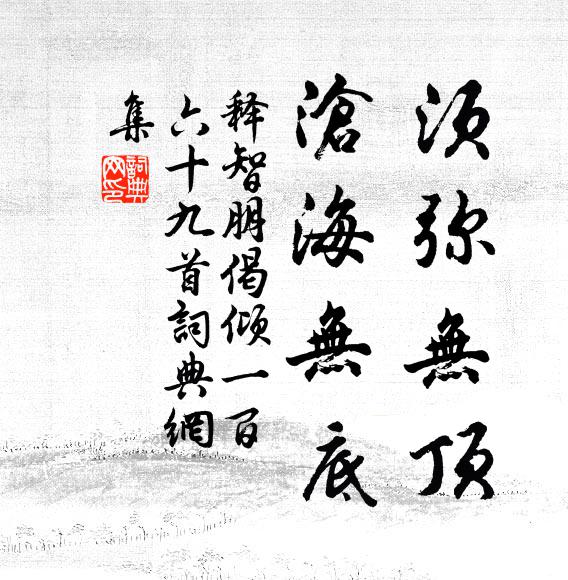 須弥無頂
滄海無底
释智朋偈倾一百
六十九首詞典網
集
詞典网印